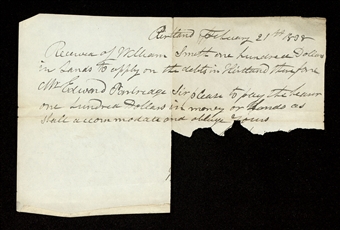 Kirtland February 21th 1838
Received of William Smith one hundred Dollars
in Lands to apply on the debts in Kirtland therefore
Mr Edward Partreage Sir please to pay the bearer
one hundred Dollars in money or Lands as
shall accommodate and oblige yours